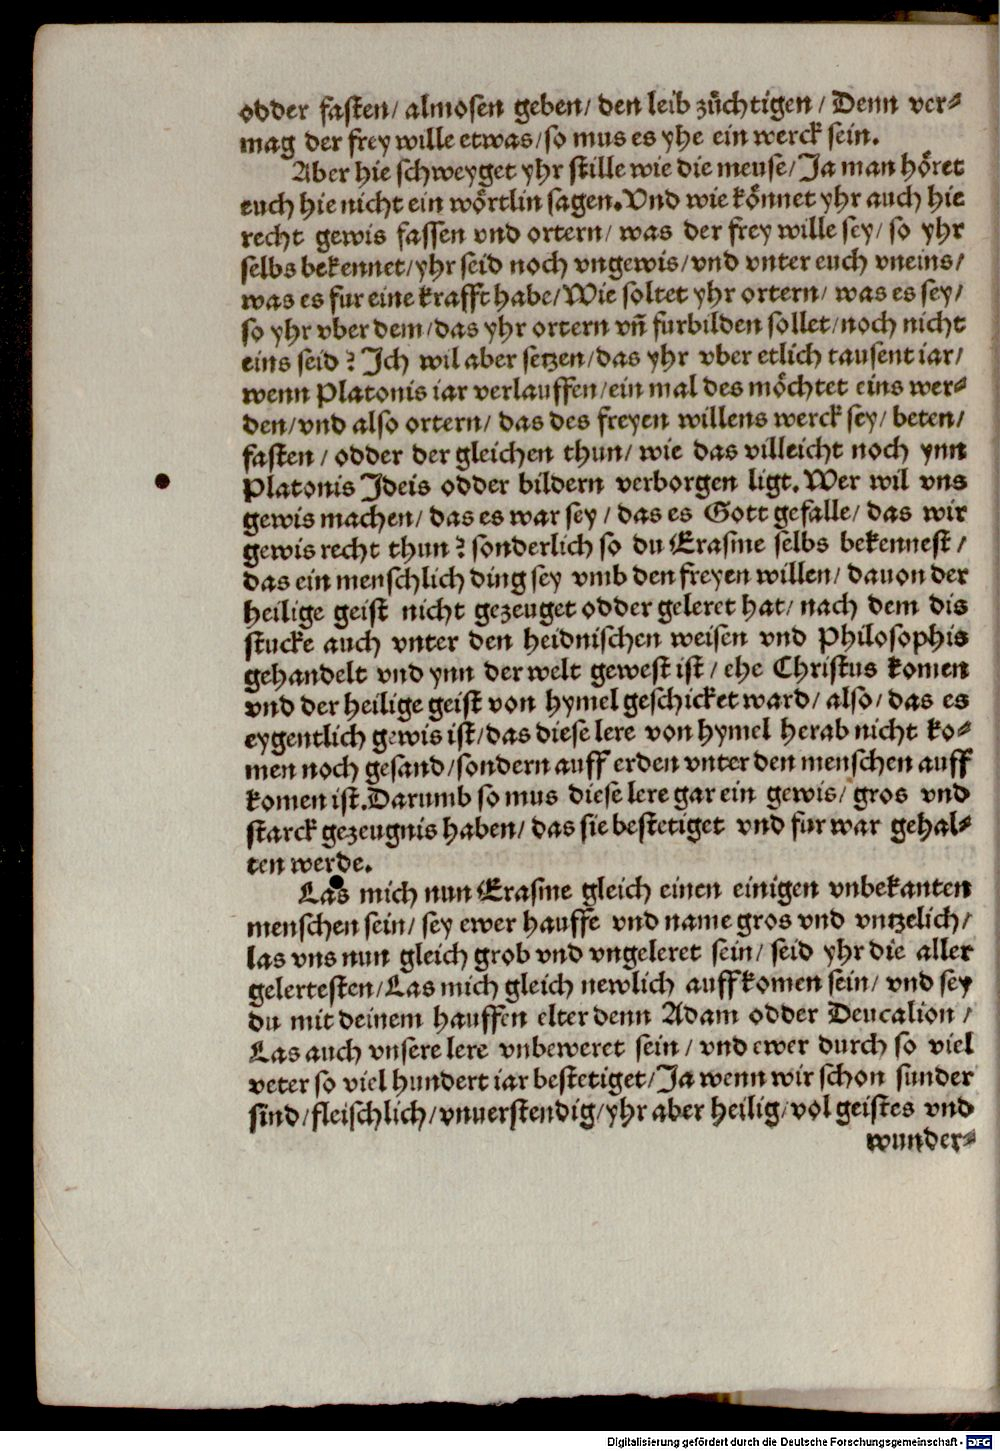 odder fasten/ almosen geben/ den leib züchtigen/ Denn ver-
mag der frey wille etwas/ so mus es yhe ein werck sein.
Aber hie schweyget yhr stille wie die meuse/ Ja man höret
euch hie nicht ein wörtlin sagen. Vnd wie könnet yhr auch hie
recht gewis fassen vnd ortern/ was der frey wille sey/ so yhr
selbs bekennet/ yhr seid noch vngewis/ vnd vnter euch vneins/
was es fur eine krafft habe/ Wie soltet yhr ortern/ was es sey/
so yhr vber dem/ das yhr ortern vñ furbilden sollet/ noch nicht
eins seid? Ich wil aber setzen/ das yhr vber etlich tausent iar/
wenn Platonis iar verlauffen/ ein mal des möchtet eins wer-
den/ vnd also ortern/ das des freyen willens werck sey/ beten/
fasten/ odder der gleichen thun/ wie das villeicht noch ynn
Platonis Ideis odder bildern verborgen ligt. Wer wil vns
gewis machen/ das es war sey/ das es Gott gefalle/ das wir
gewis recht thun? sonderlich so du Erasme selbs bekennest/
das ein menschlich ding sey vmb den freyen willen/ dauon der
heilige geist nicht gezeuget odder geleret hat/ nach dem dis
stucke auch vnter den heidnischen weisen vnd Philosophis
gehandelt vnd ynn der welt gewest ist/ ehe Christus komen
vnd der heilige geist von hymel geschicket ward/ also/ das es
eygentlich gewis ist/ das diese lere von hymel herab nicht ko-
men noch gesand/ sondern auff erden vnter den menschen auff
komen ist. Darumb so mus diese lere gar ein gewis/ gros vnd
starck gezeugnis haben/ das sie bestetiget vnd fur war gehal-
ten werde.
Las mich nun Erasme gleich einen einigen vnbekanten
menschen sein/ sey ewer hauffe vnd name gros vnd vntzelich/
las vns nun gleich grob vnd vngeleret sein/ seid yhr die aller
gelertesten/ Las mich gleich newlich auffkomen sein/ vnd sey
du mit deinem hauffen elter denn Adam odder Deucalion/
Las auch vnsere lere vnbeweret sein/ vnd ewer durch so viel
veter so viel hundert iar bestetiget/ Ja wenn wir schon sunder
sind/ fleischlich/ vnuerstendig/ yhr aber heilig/ vol geistes vnd
wunder-
Digitalisierung gefördert durch die Deutsche Forschungsgemeinschaft - DFG